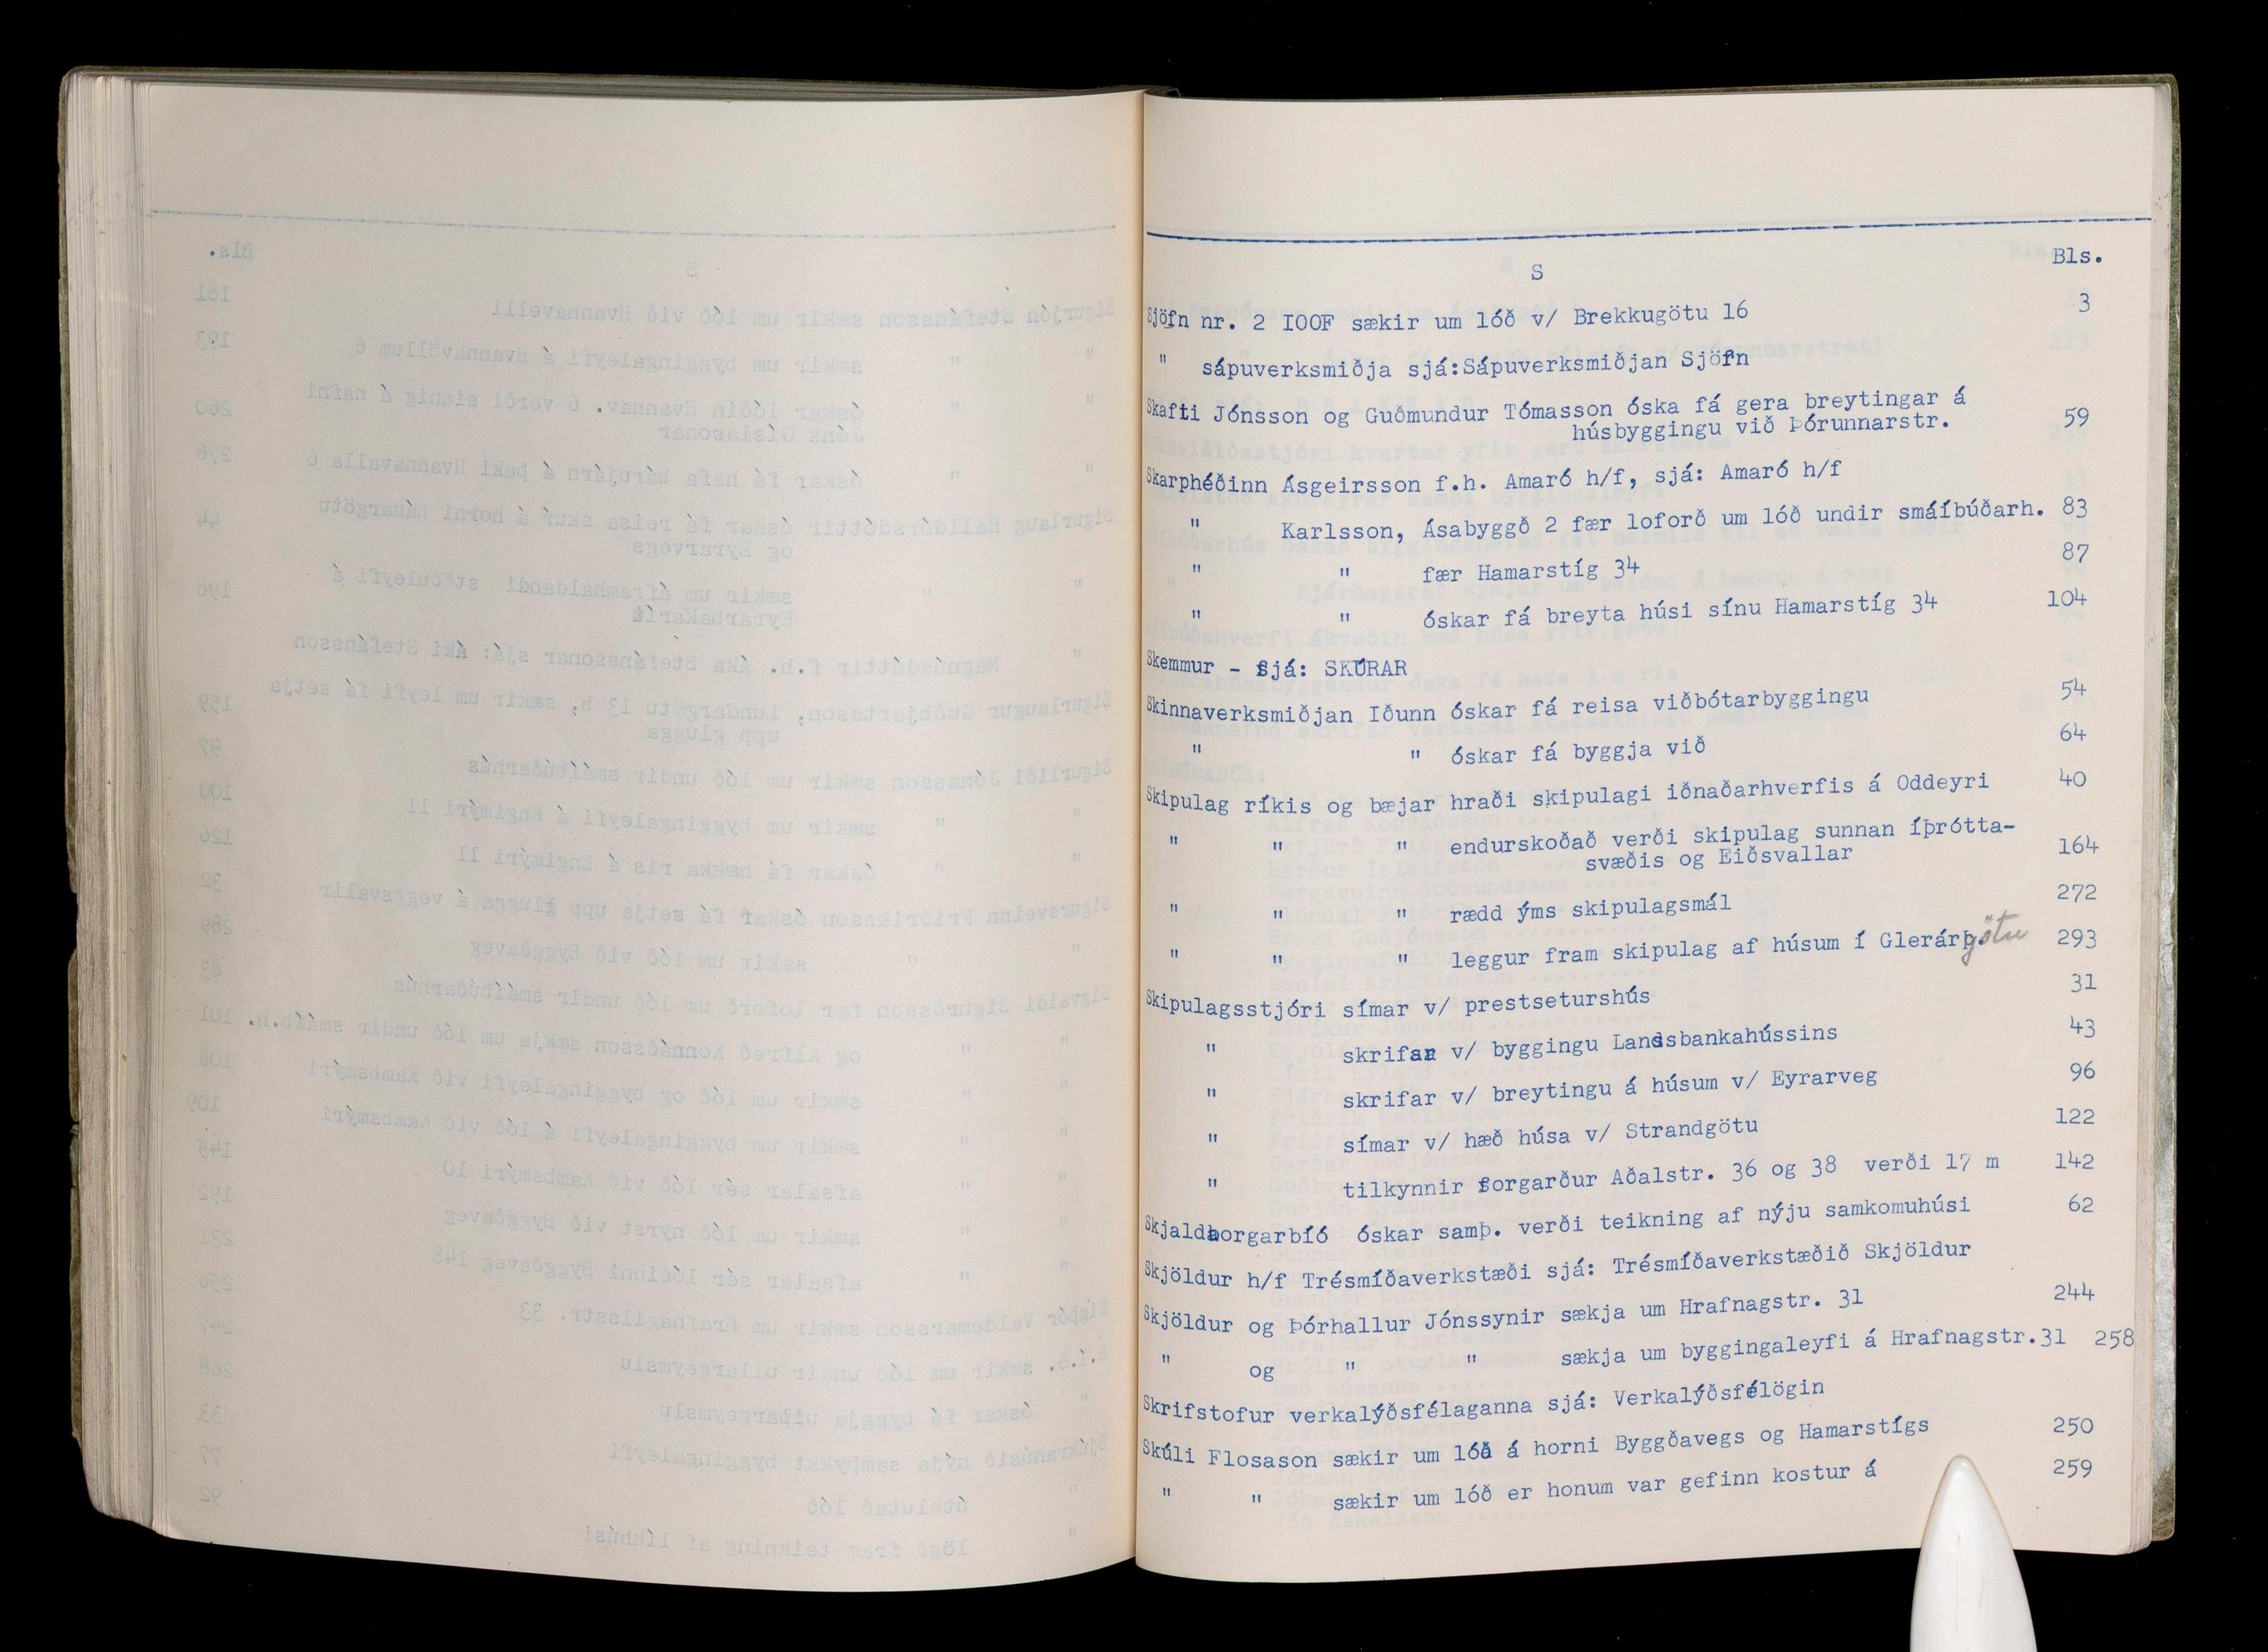 S Bls.
Sjöfn nr. 2 IOOF sækir um lóð v/ Brekkugötu 16 3
" sápuverksmiðja sjá:Sápuverksmiðjan Sjöfn
Skafti Jónsson og Guðmundur Tómasson óska fá gera breytingar á
húsbyggingu við Þórunnarstr. 59
Skarphéðinn Ásgeirsson f.h. Amaró h/f, sjá: Amaró h/f
" Karlsson, Ásabyggð 2 fær loforð um lóð undir smáíbúðarh. 83
" " fær Hamarstíg 34 87
" " óskar fá breyta húsi sínu Hamarstíg 34 104
Skemmur - sjá: SKÚRAR
Skinnaverksmiðjan Iðunn óskar fá reisa viðbótarbyggingu 54
" " óskar fá byggja við 64
Skipulag ríkis og bæjar hraði skipulagi iðnaðarhverfis á Oddeyri 40
" " " endurskoðað verði skipulag sunnan íþrótta-
svæðis og Eiðsvallar 164
" " " rædd ýms skipulagsmál 272
" " " leggur fram skipulag af húsum í Glerárgötu 293
Skipulagsstjóri símar v/ prestseturshús 31
" skrifar v/ byggingu Landsbankahússins 43
" skrifar v/ breytingu á húsum v/ Eyrarveg 96
" símar v/ hæð húsa v/ Strandgötu 122
" tilkynnir forgarður Aðalstr. 36 og 38 verði 17 m 142
Skjaldborgarbíó óskar samþ. verði teikning af nýju samkomuhúsi 62
Skjöldur h/f Trésmíðaverkstæði sjá: Trésmíðaverkstæðið Skjöldur
Skjöldur og Þórhallur Jónssynir sækja um Hrafnagstr. 31 244
" og " " sækja um byggingaleyfi á Hrafnagstr.31 258
Skrifstofur verkalýðsfélaganna sjá: Verkalýðsfélögin
Skúli Flosason sækir um lóð á horni Byggðavegs og Hamarstígs 250
" " sækir um lóð er honum var gefinn kostur á 259